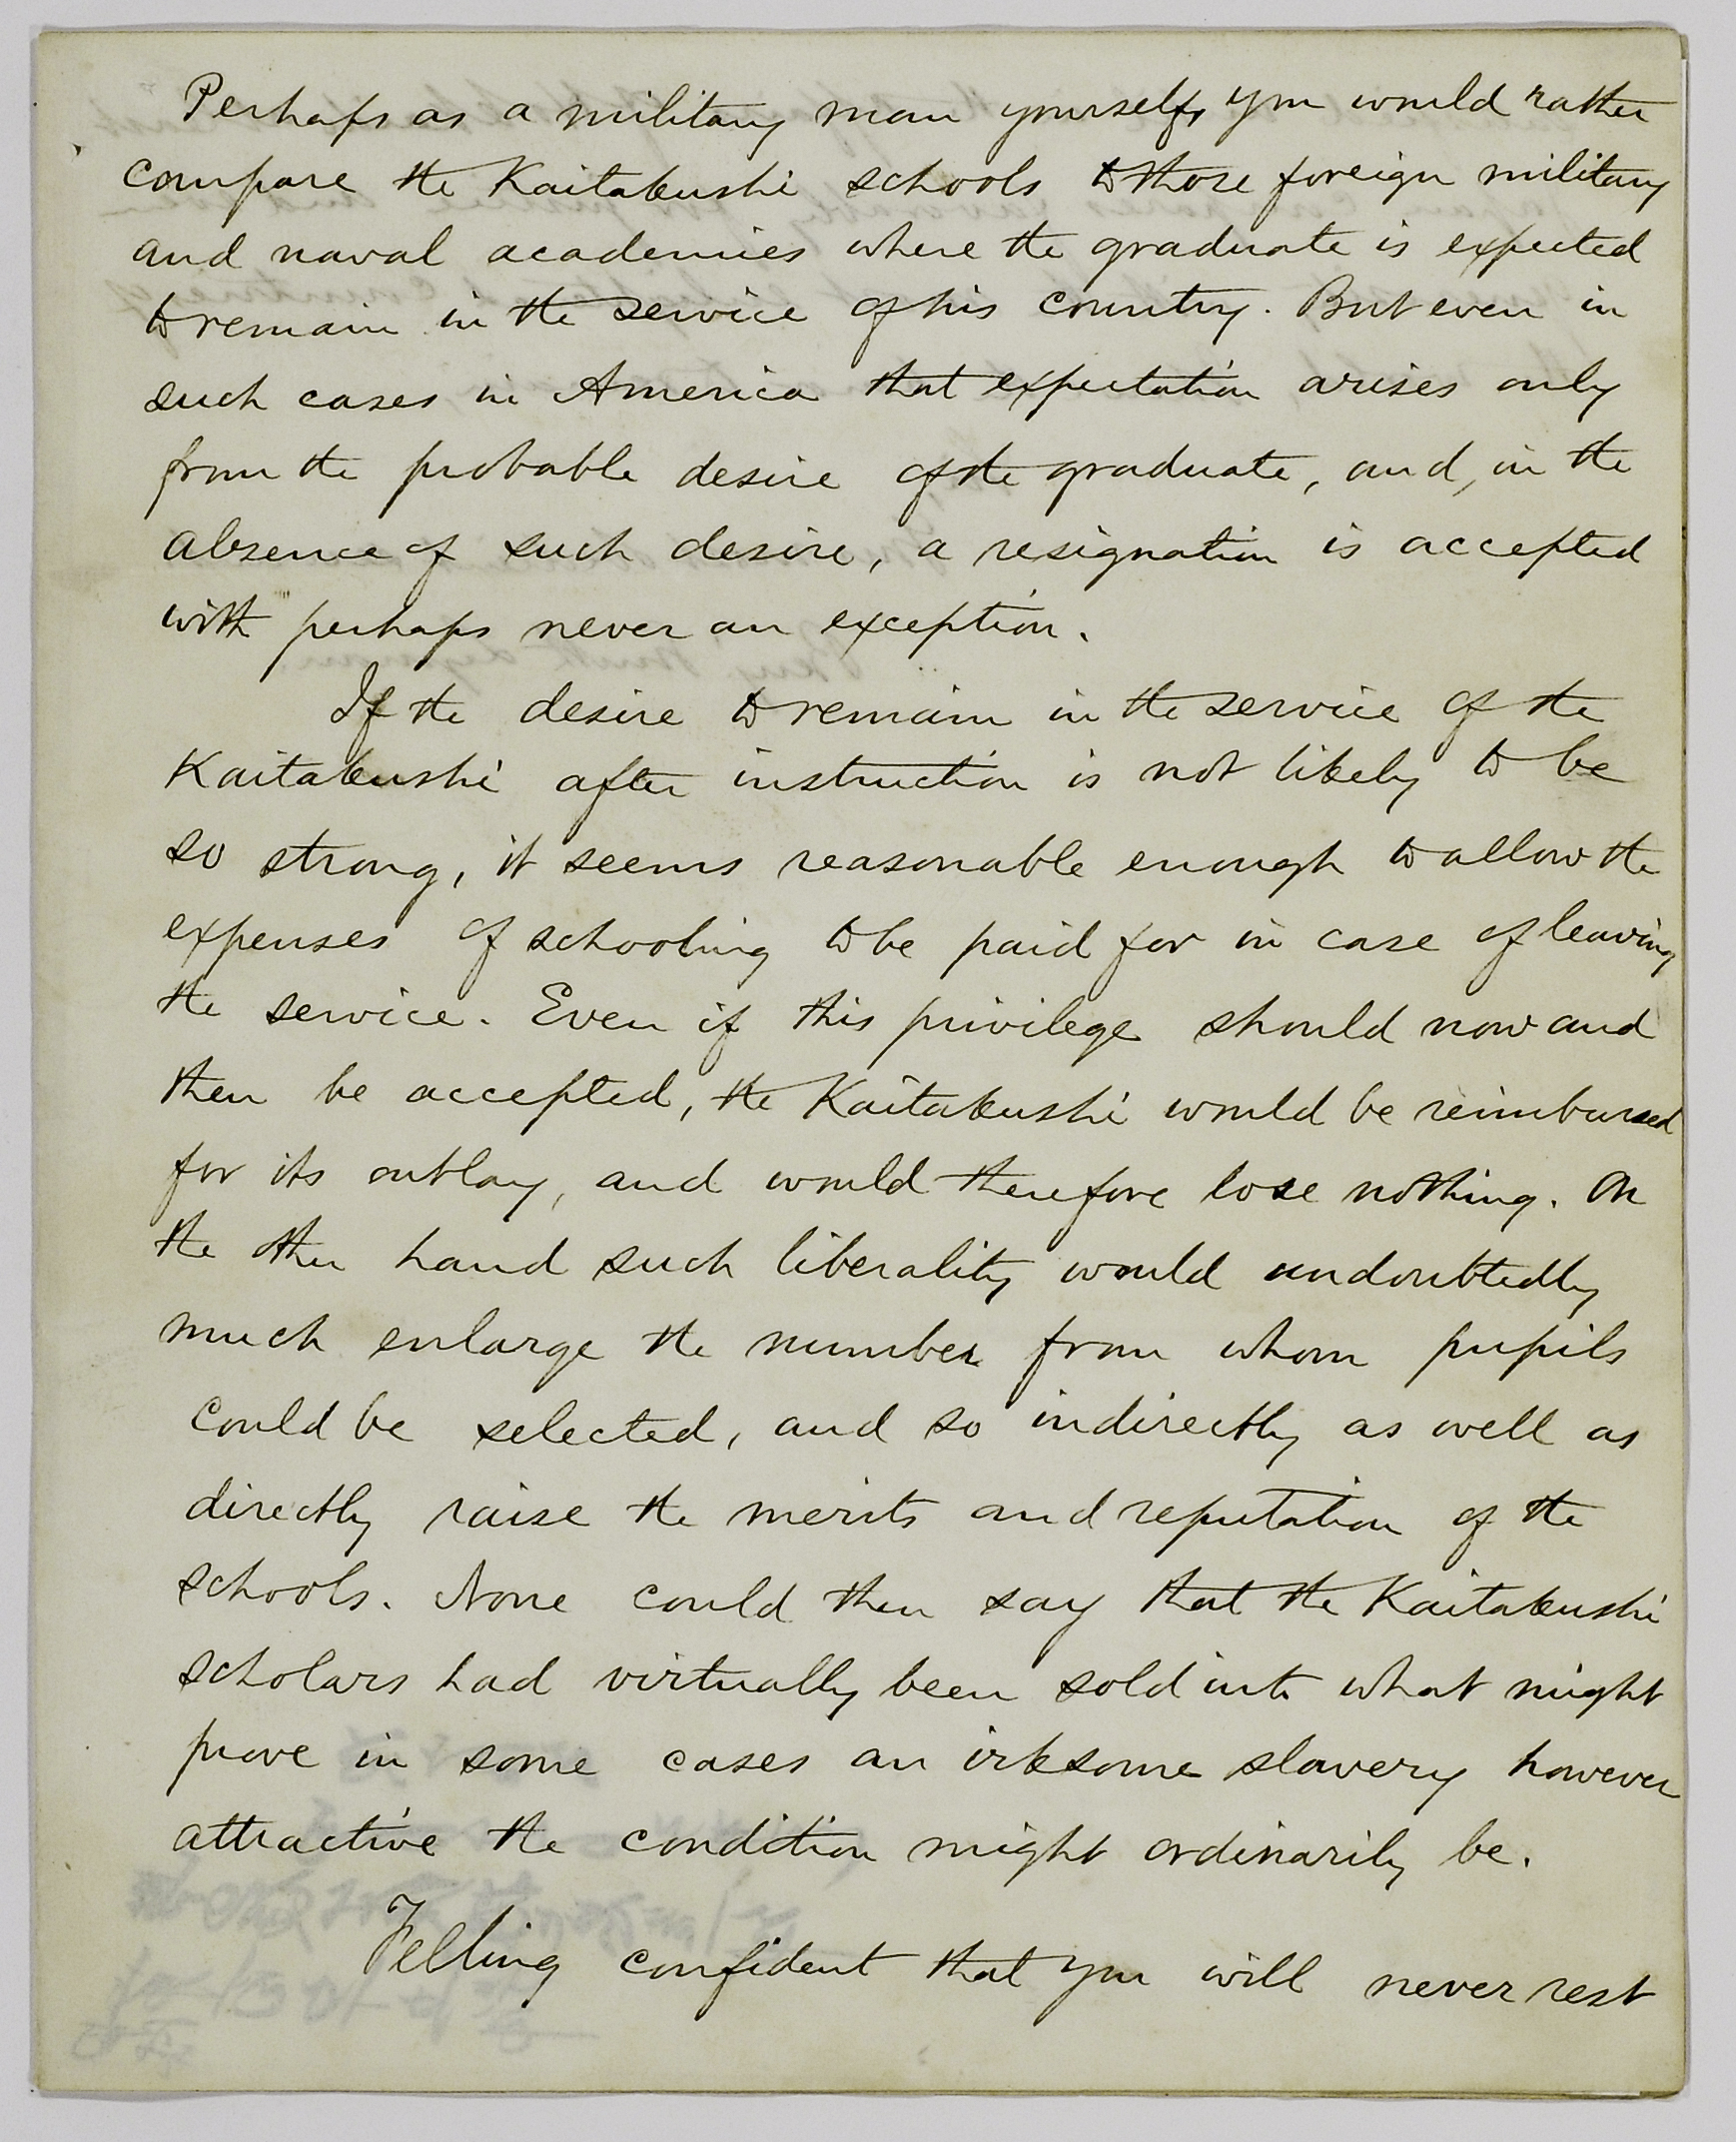 Perhaps as a military man yourself, you would rather
compare the Kaitakushi schools to those foreign military
and naval academies where the graduate is expected
to remain in the service of his country. But even in
such cases in America that expectation arises only
from the probable desire of the graduate, and, in the
absence of such desire, a resignation is accepted
with perhaps never an exception.
If the desire to remain in the service of the
Kaitakushi after instruction is not likely to be
so strong, it seems reasonable enough to allow the
expenses of schooling to be paid for in case of leaving
the service. Even if this privilege should now and
then be accepted, the Kaitakushi would be reimbursed
for its outlay, and would therefore lose nothing. On
the other hand such liberality would undoubtedly
much enlarge the number from whom pupils
could be selected, and so indirectly as well as
directly raise the merits and reputation of the
schools. None could then say that the Kaitakushi
scholars had virtually been sold into what might
prove in some cases an irksome slavery however
attractive the condition might ordinarily be.
Felling confident that you will never rest